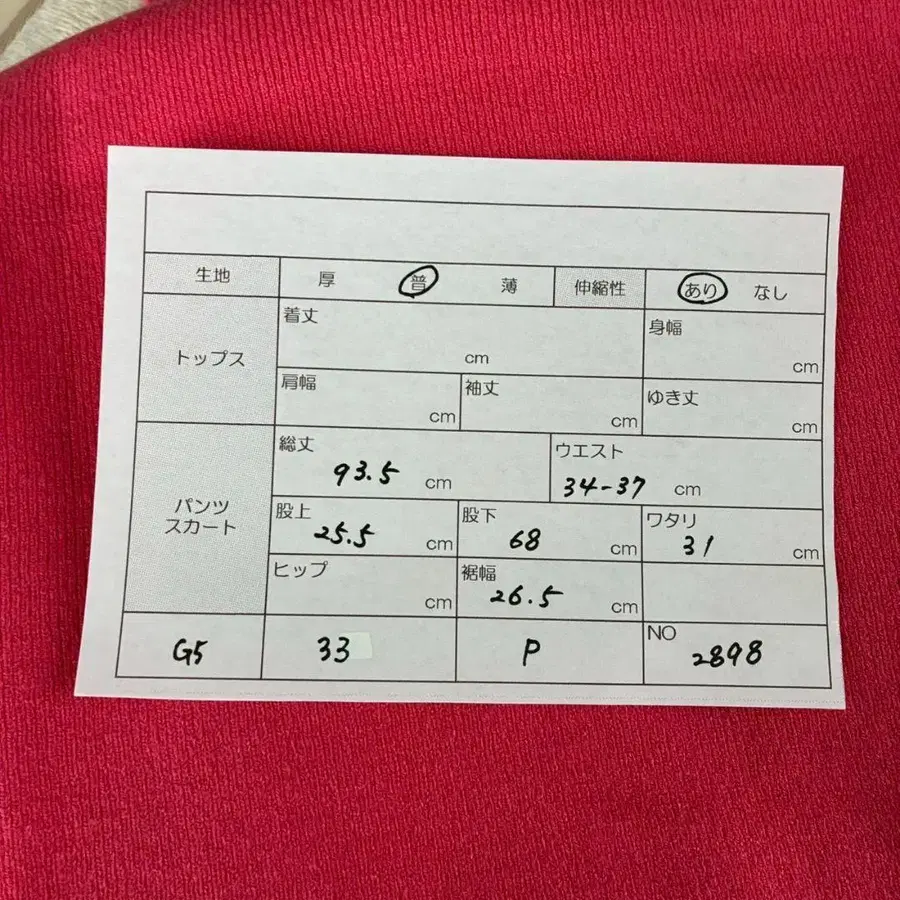 生地 厚 普 薄 伸縮性 あり なし
トップス
着丈 cm
身幅 cm
肩幅 cm
袖丈 cm
ゆき丈 cm
パンツ
スカート
総丈 93.5 cm
ウエスト 34-37 cm
股上 25.5 cm
股下 68 cm
ワタリ 31 cm
ヒップ cm
裾幅 26.5 cm
G5 33 P NO 2898